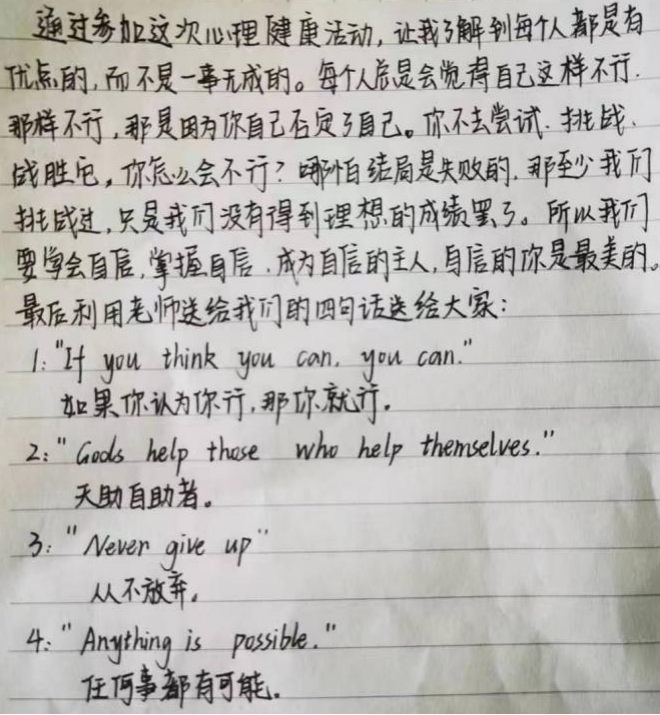 通过参加这次心理健康活动,让我了解到每个人都是有
优点的,而不是一事无成的。每个人总是会觉得自己这样不行.
那样不行,那是因为你自己否定了自己。你不去尝试.挑战.
战胜它,你怎么会不行?哪怕结局是失败的.那至少我们
挑战过,只是我们没有得到理想的成绩罢了。所以我们
要学会自信,掌握自信.成为自信的主人,自信的你是最美的。
最后利用老师送给我们的四句话送给大家:
1:"If you think you can, you can."
如果你认为你行,那你就行。
2:"Gods help those who help themselves."
天助自助者。
3:"Never give up"
从不放弃。
4:"Anything is possible."
任何事都有可能.